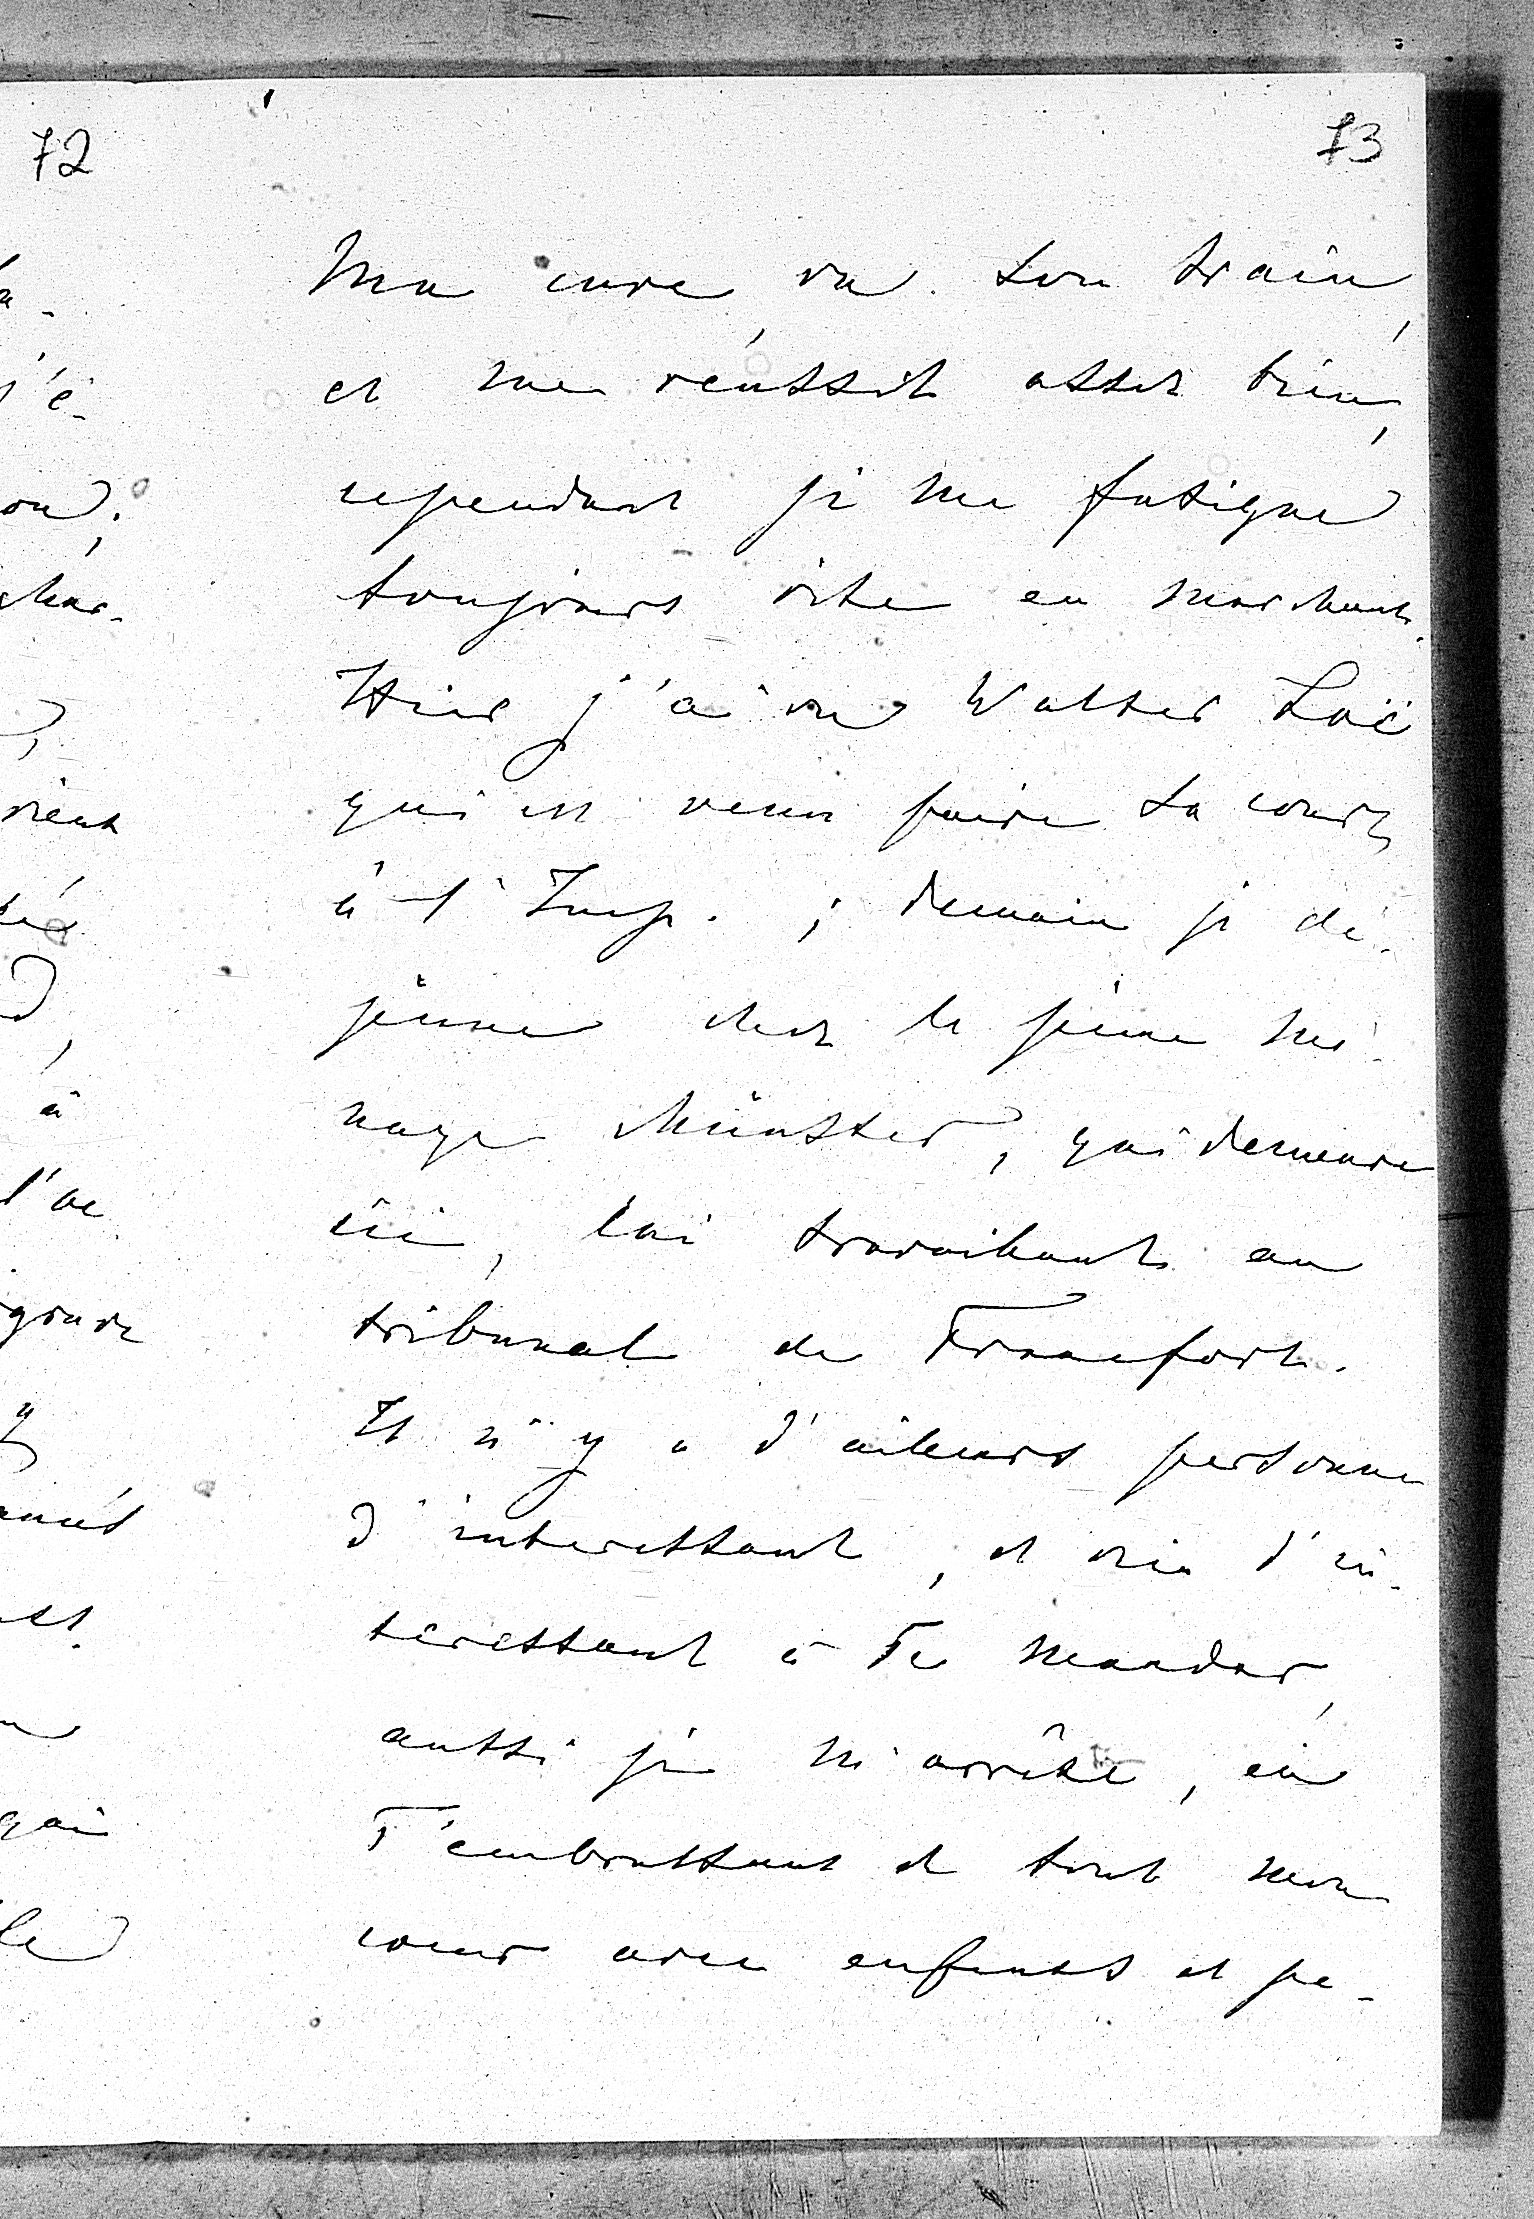 72
73
Ma cure va son train,
et me réussit assez bien,
cependant je me fatigue
toujours vite en marchant.
Hier j'ai vu Walter Loë
qui est venu faire sa cour
à l'Imp. ; demain je dé-
jeune chez le jeune mé-
nage Münster, qui demeure
ici, lui travaillant au
tribunal de Francfort.
Il n'y a d'ailleurs personne
d'interessant, et rien d'in-
téressant à Te mander,
aussi je m'arrête, en
T'embrassant de tout mon
coeur avec enfants et pe-